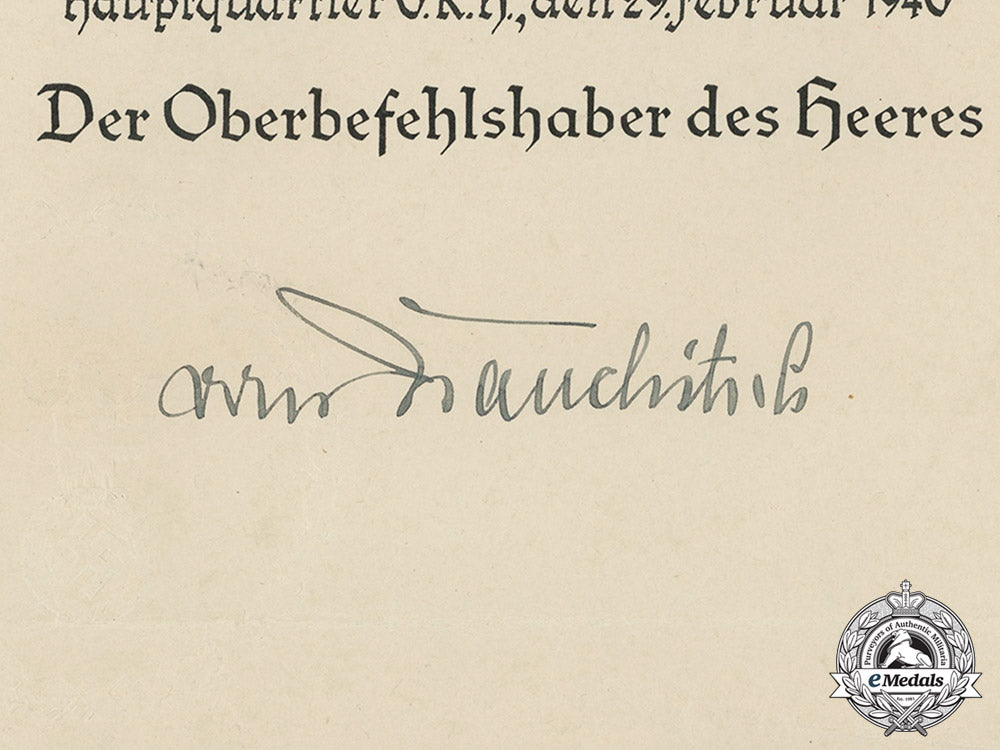 Hauptquartier O.K.H., den 29. Februar 1940
Der Oberbefehlshaber des Heeres
von Brauchitsch
Purveyors of Authentic Militaria
eMedals
Est. 1985